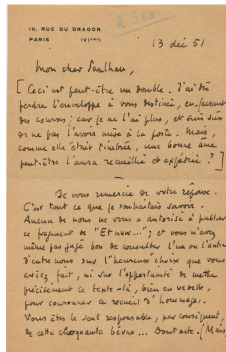 10, RUE DU DRAGON
PARIS (VIème)
13 déc 51
mon cher Paulhan,
[Ceci est peut-être un double. J'ai dû
perdre l'enveloppe à vous destinée, en faisant
des courses; car je ne l'ai plus, et suis sûr
de ne pas l'avoir mise à la poste. Mais,
comme elle était timbrée, une bonne âme
peut-être l'aura recueillie et expédiée ?]
Je vous remercie de votre réponse.
C'est tout ce que je souhaitais savoir.
Aucun de nous ne vous a autorisé à publier
ce fragment de "Et nunc..."; et vous n'avez
même pas jugé bon de consulter l'un ou l'autre
d'entre nous sur l'heureux choix que vous
aviez fait, ni sur l'opportunité de mettre
précisément ce texte-là, bien en vedette,
pour couronner ce recueil d'hommages.
Vous êtes le seul responsable, par conséquent,
de cette choquante bévue... Dont acte. (Mais